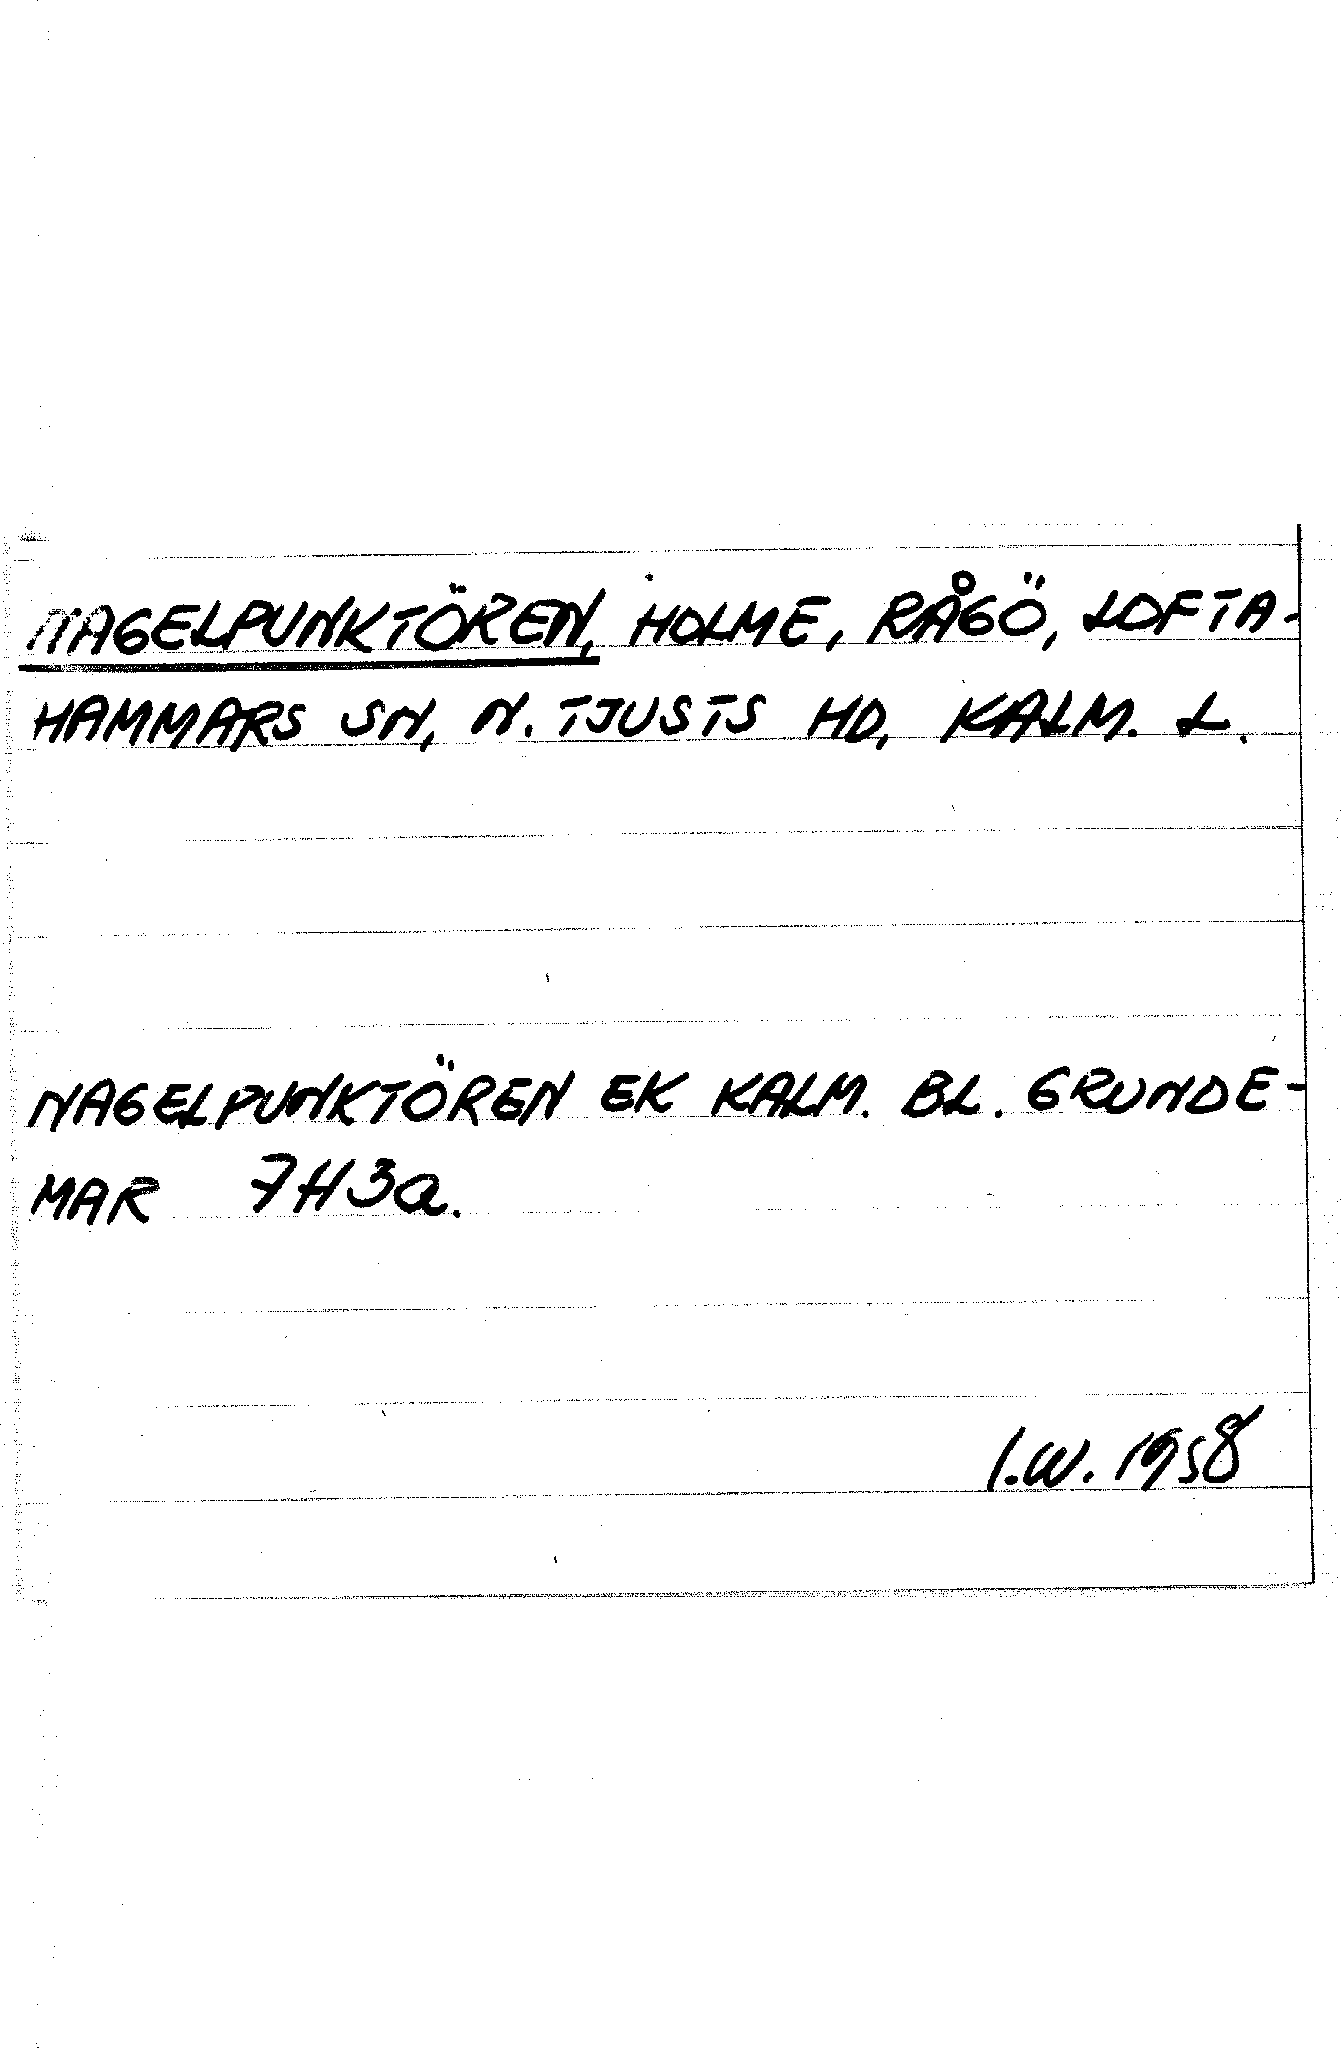 NAGELPUNKTÖREN, HOLME, RÅGÖ, LOFTA-
HAMMARS SN, N. TJUSTS HD, KALM. L.
NAGELPUNKTÖREN EK KALM. BL. GRUNDE-
MAR 7H3a.
I.W. 1958